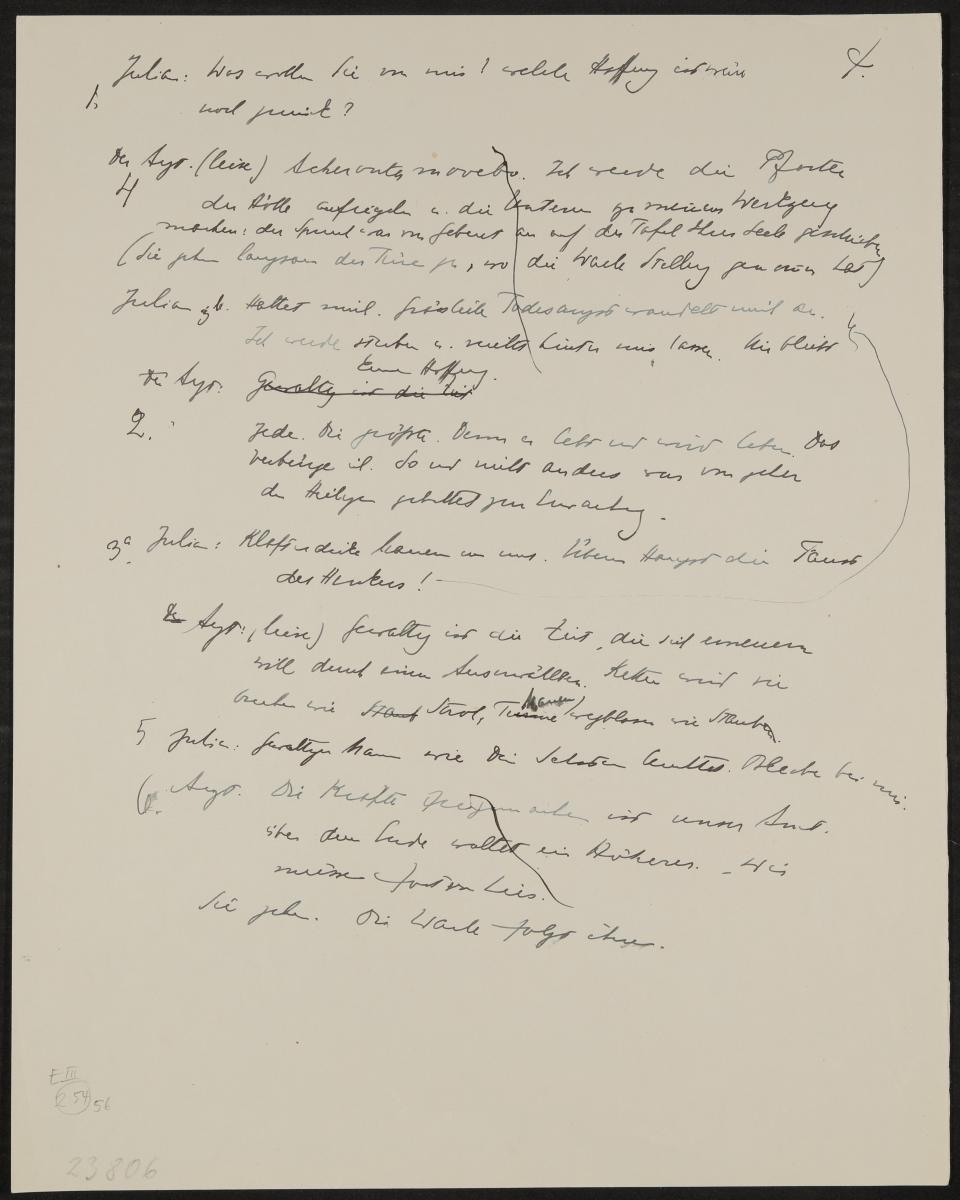 4.
Julian: Was wollen Sie von mir? welche Hoffnung ist mir
1. noch zurück?
Der Arzt. (leise) Acheronta movebo. Ich werde die Pforten
4 der Hölle aufriegeln u. die Unteren zu meinem Werkzeug
machen: der Spruch war von Geburt an auf der Tafel Ihrer Seele geschrieben
(Sie gehen langsam der Türe zu, wo die Wache Stellung genommen hat)
Julian 3b. Haltet mich. Grässliche Todesangst wandelt mich an.
Ich werde sterben u. nichts hinter mir lassen. Mir bleibt
keine Hoffnung.
Der Arzt: Gewaltig ist die Zeit
2. Jede. Die größte. Denn er lebt und wird leben. Das
verbürge ich. So und nicht anders war von jeher
der Heiligen
3a Julian: Klafterdicke Mauern um uns. Überm Haupt die Faust
des Henkers! –
Der Arzt: (leise) Gewaltig ist die Zeit, die sich erneuern
will durch einen Auserwählten. Ketten wird sie
brechen wie Stroh, Türme wegblasen wie Staub.
5 Julian: bleibe bei mir.
6. Arzt. Die Kräfte freizumachen ist unser Amt.
über dem Ende waltet ein Höherer. – Wir
müssen fort von hier.
Sie gehen. Die Wache folgt ihnen.
E III
254 56
23806